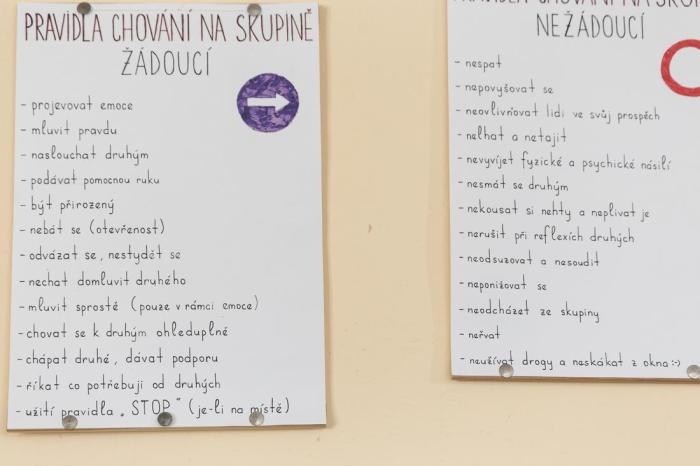 PRAVIDLA CHOVÁNÍ NA SKUPINĚ
ŽÁDOUCÍ
- projevovat emoce
- mluvit pravdu
- naslouchat druhým
- podávat pomocnou ruku
- být přirozený
- nebát se (otevřenost)
- odvázat se, nestydět se
- nechat domluvit druhého
- mluvit sprostě (pouze v rámci emoce)
- chovat se k druhým ohleduplně
- chápat druhé, dávat podporu
- říkat co potřebuji od druhých
- užití pravidla „STOP" (je-li na místě)
PRAVIDLA CHOVÁNÍ NA SKUP
NEŽÁDOUCÍ
- nespat
- nepovyšovat se
- neovlivňovat lidi ve svůj prospěch
- nelhat a netajit
- nevyvíjet fyzické a psychické násilí
- nesmát se druhým
- nekousat si nehty a neplivat je
- nerušit při reflexích druhých
- neodsuzovat a nesoudit
- neponižovat se
- neodcházet ze skupiny
- neřvat
- neužívat drogy a neskákat z okna :-)